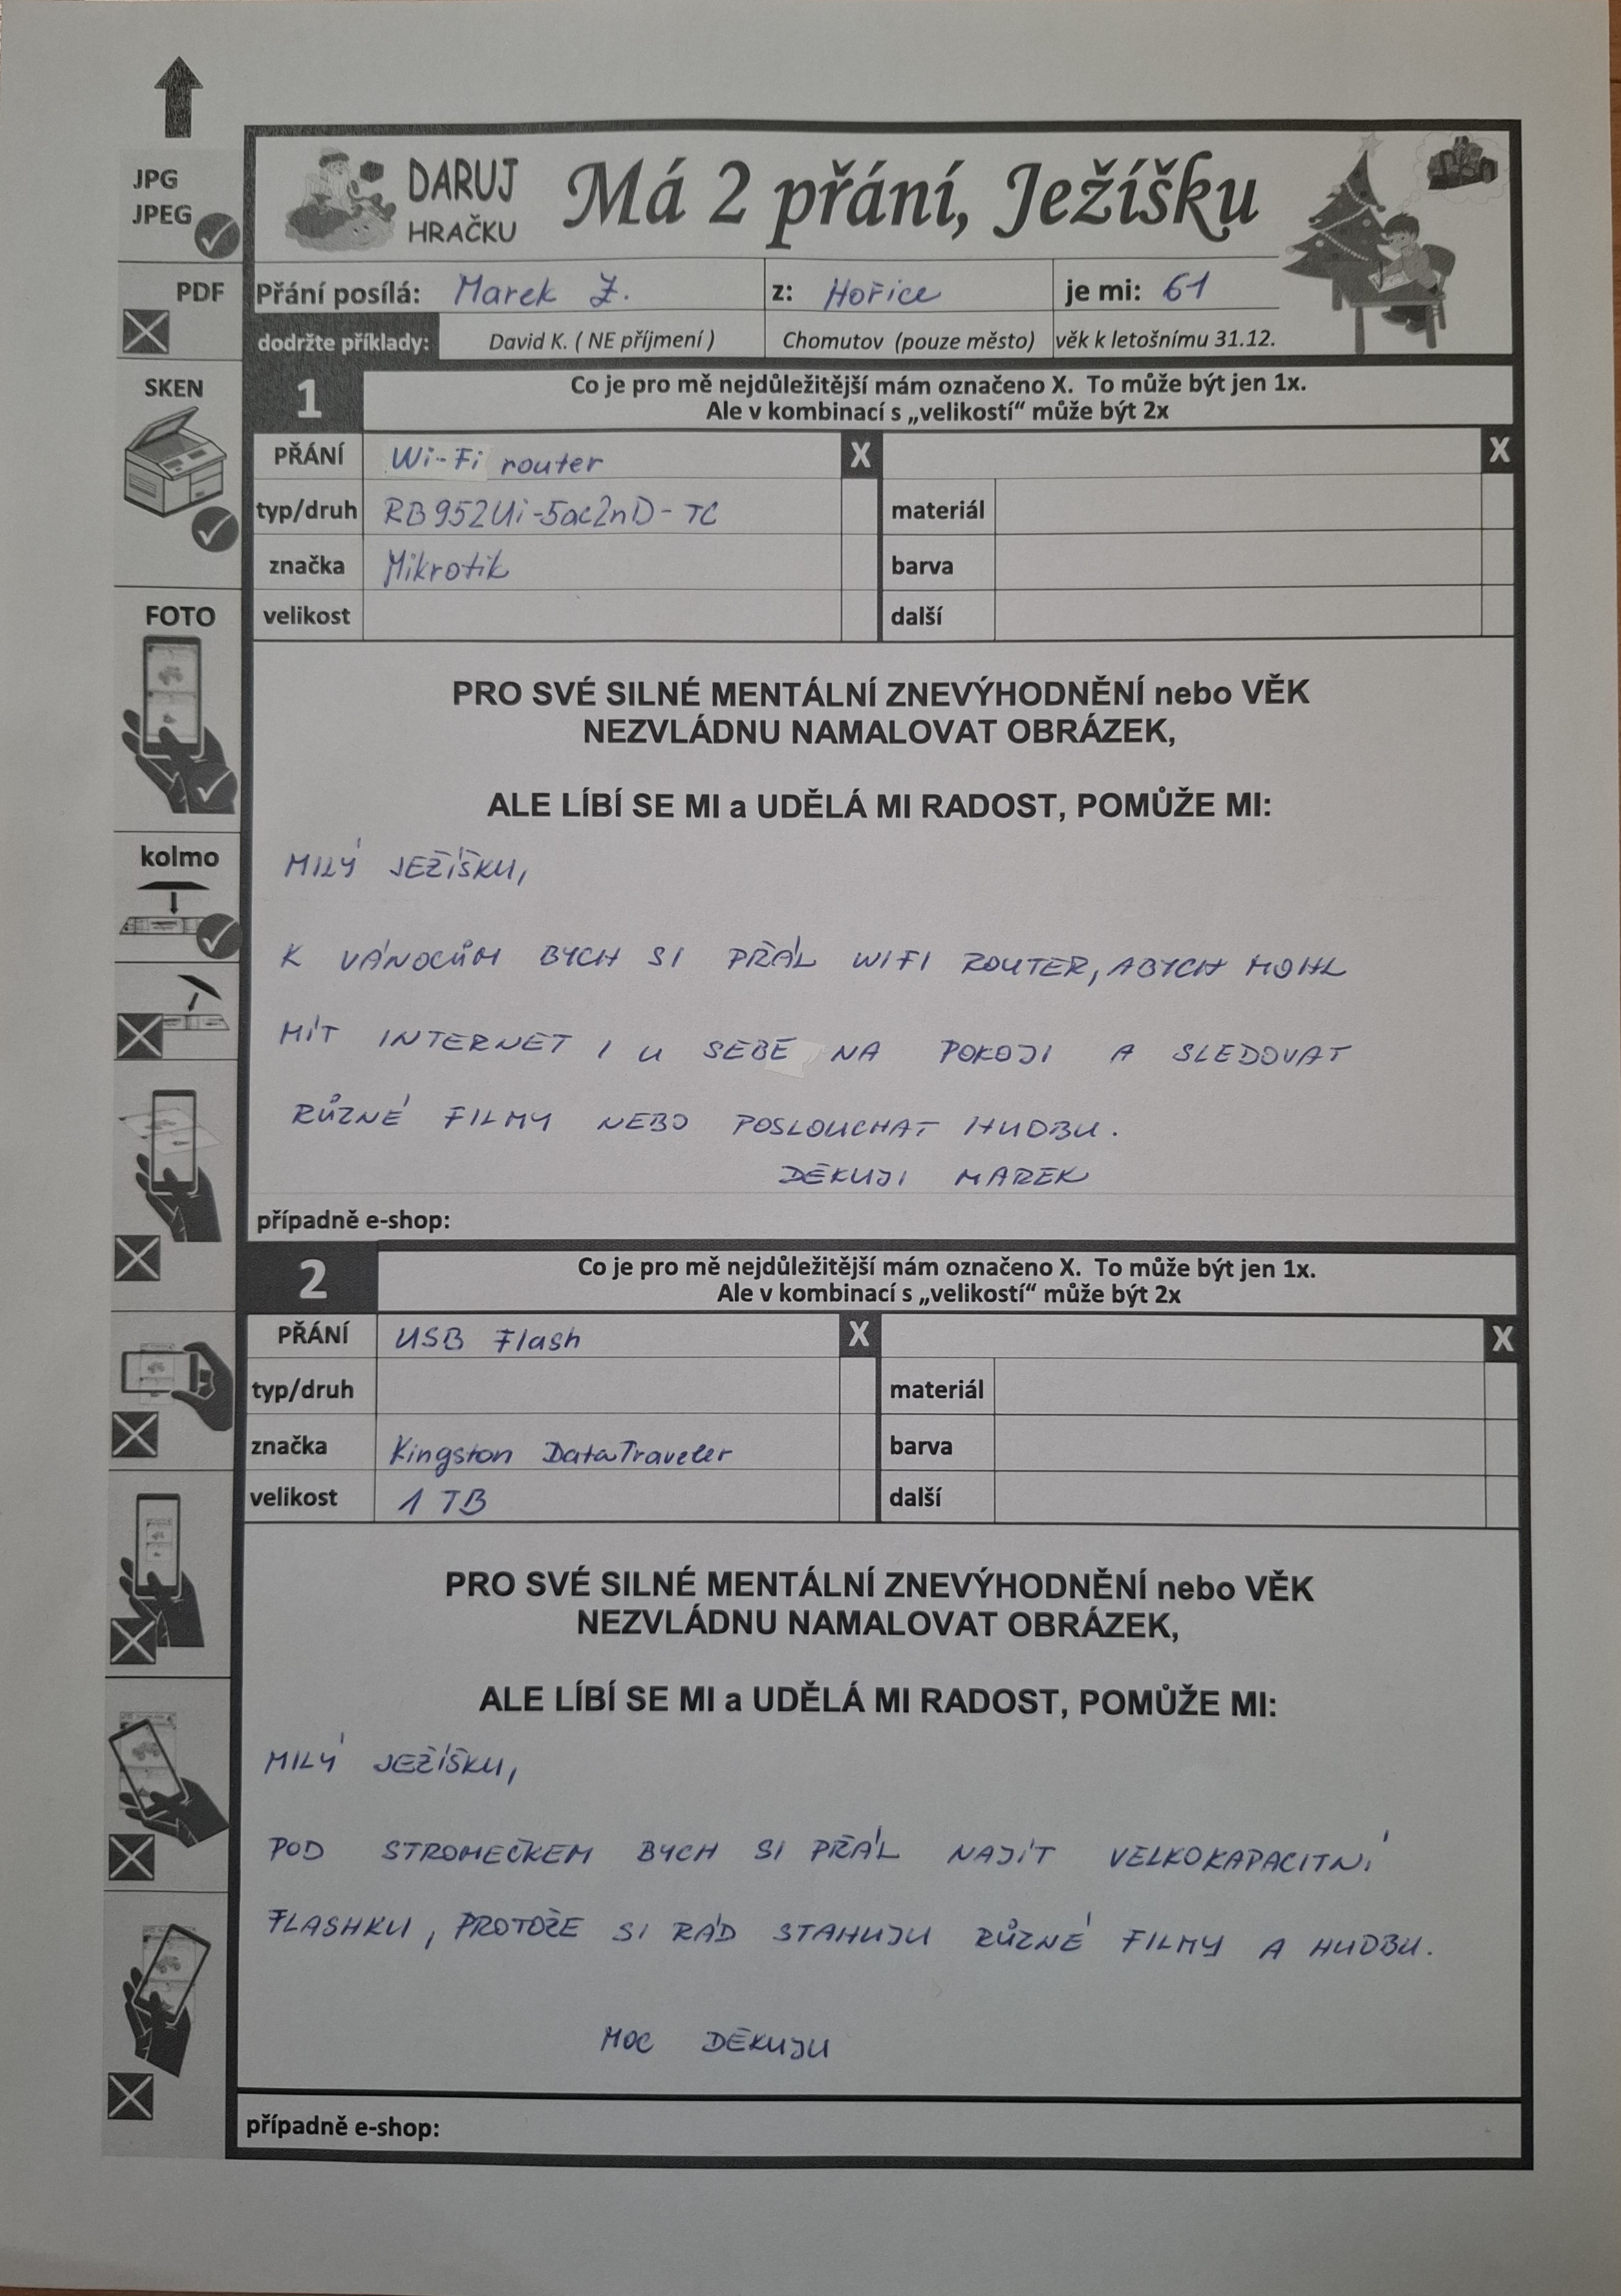 JPG
JPEG
PDF
SKEN
FOTO
kolmo
DARUJ
HRAČKU
Má 2 přání, Ježíšku
Přání posílá: Marek Z. z: Hořice je mi: 61
dodržte příklady: David K. ( NE příjmení ) Chomutov (pouze město) věk k letošnímu 31.12.
1 Co je pro mě nejdůležitější mám označeno X. To může být jen 1x.
Ale v kombinací s „velikostí“ může být 2x
PŘÁNÍ Wi-Fi router X X
typ/druh RB952Ui-5ac2nD-TC materiál
značka Mikrotik barva
velikost další
PRO SVÉ SILNÉ MENTÁLNÍ ZNEVÝHODNĚNÍ nebo VĚK
NEZVLÁDNU NAMALOVAT OBRÁZEK,
ALE LÍBÍ SE MI a UDĚLÁ MI RADOST, POMŮŽE MI:
MILÝ JEŽÍŠKU,
K VÁNOCŮM BYCH SI PŘÁL WIFI ROUTER, ABYCH MOHL
MÍT INTERNET I U SEBE NA POKOJI A SLEDOVAT
RŮZNÉ FILMY NEBO POSLOUCHAT HUDBU.
DĚKUJI MAREK
případně e-shop:
2 Co je pro mě nejdůležitější mám označeno X. To může být jen 1x.
Ale v kombinací s „velikostí“ může být 2x
PŘÁNÍ USB Flash X X
typ/druh materiál
značka Kingston DataTraveler barva
velikost 1 TB další
PRO SVÉ SILNÉ MENTÁLNÍ ZNEVÝHODNĚNÍ nebo VĚK
NEZVLÁDNU NAMALOVAT OBRÁZEK,
ALE LÍBÍ SE MI a UDĚLÁ MI RADOST, POMŮŽE MI:
MILÝ JEŽÍŠKU,
POD STROMEČKEM BYCH SI PŘÁL NAJÍT VELKOKAPACITNÍ
FLASHKU, PROTOŽE SI RÁD STAHUJU RŮZNÉ FILMY A HUDBU.
MOC DĚKUJU
případně e-shop: